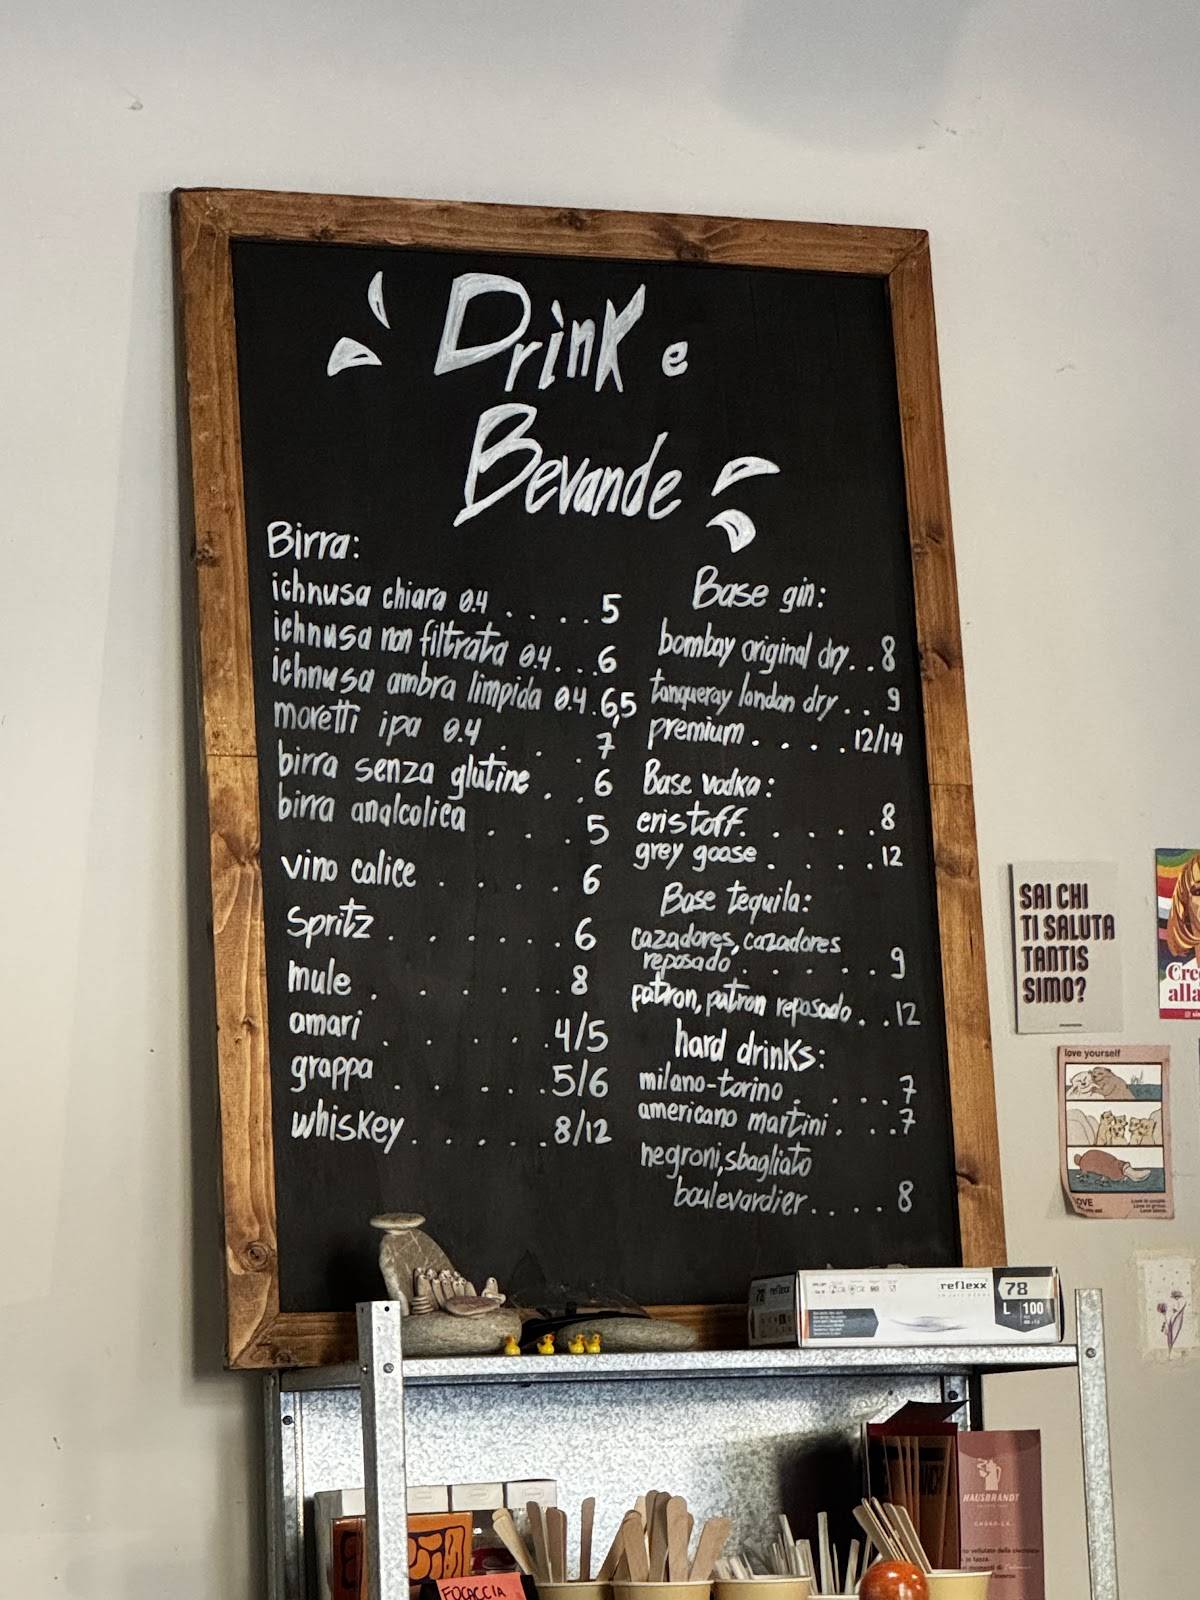 Drink e
Bevande
Birra:
ichnusa chiara 0.4 . . . . . 5
ichnusa non filtrata 0.4 . . . 6
ichnusa ambra limpida 0.4 . 6,5
moretti ipa 0.4 . . . 7
birra senza glutine . . 6
birra analcolica . . . 5
vino calice . . . . . 6
Spritz . . . . . . 6
mule . . . . . . 8
amari . . . . . 4/5
grappa . . . . . 5/6
whiskey . . . . . . 8/12
Base gin:
bombay original dry . . 8
tanqueray london dry . . 9
premium . . . . 12/14
Base vodka:
eristoff . . . . . 8
grey goose . . . . 12
Base tequila:
cazadores, cazadores
reposado . . . . . 9
patron, patron reposado . . 12
hard drinks:
milano-torino . . . . 7
americano martini . . . 7
negroni, sbagliato
boulevardier . . . . 8
SAI CHI
TI SALUTA
TANTIS
SIMO?
Cre
alla
love yourself
OVE
reflexx
78
L 100
78 reflexx
HAUSBRANDT
FOCACCIA